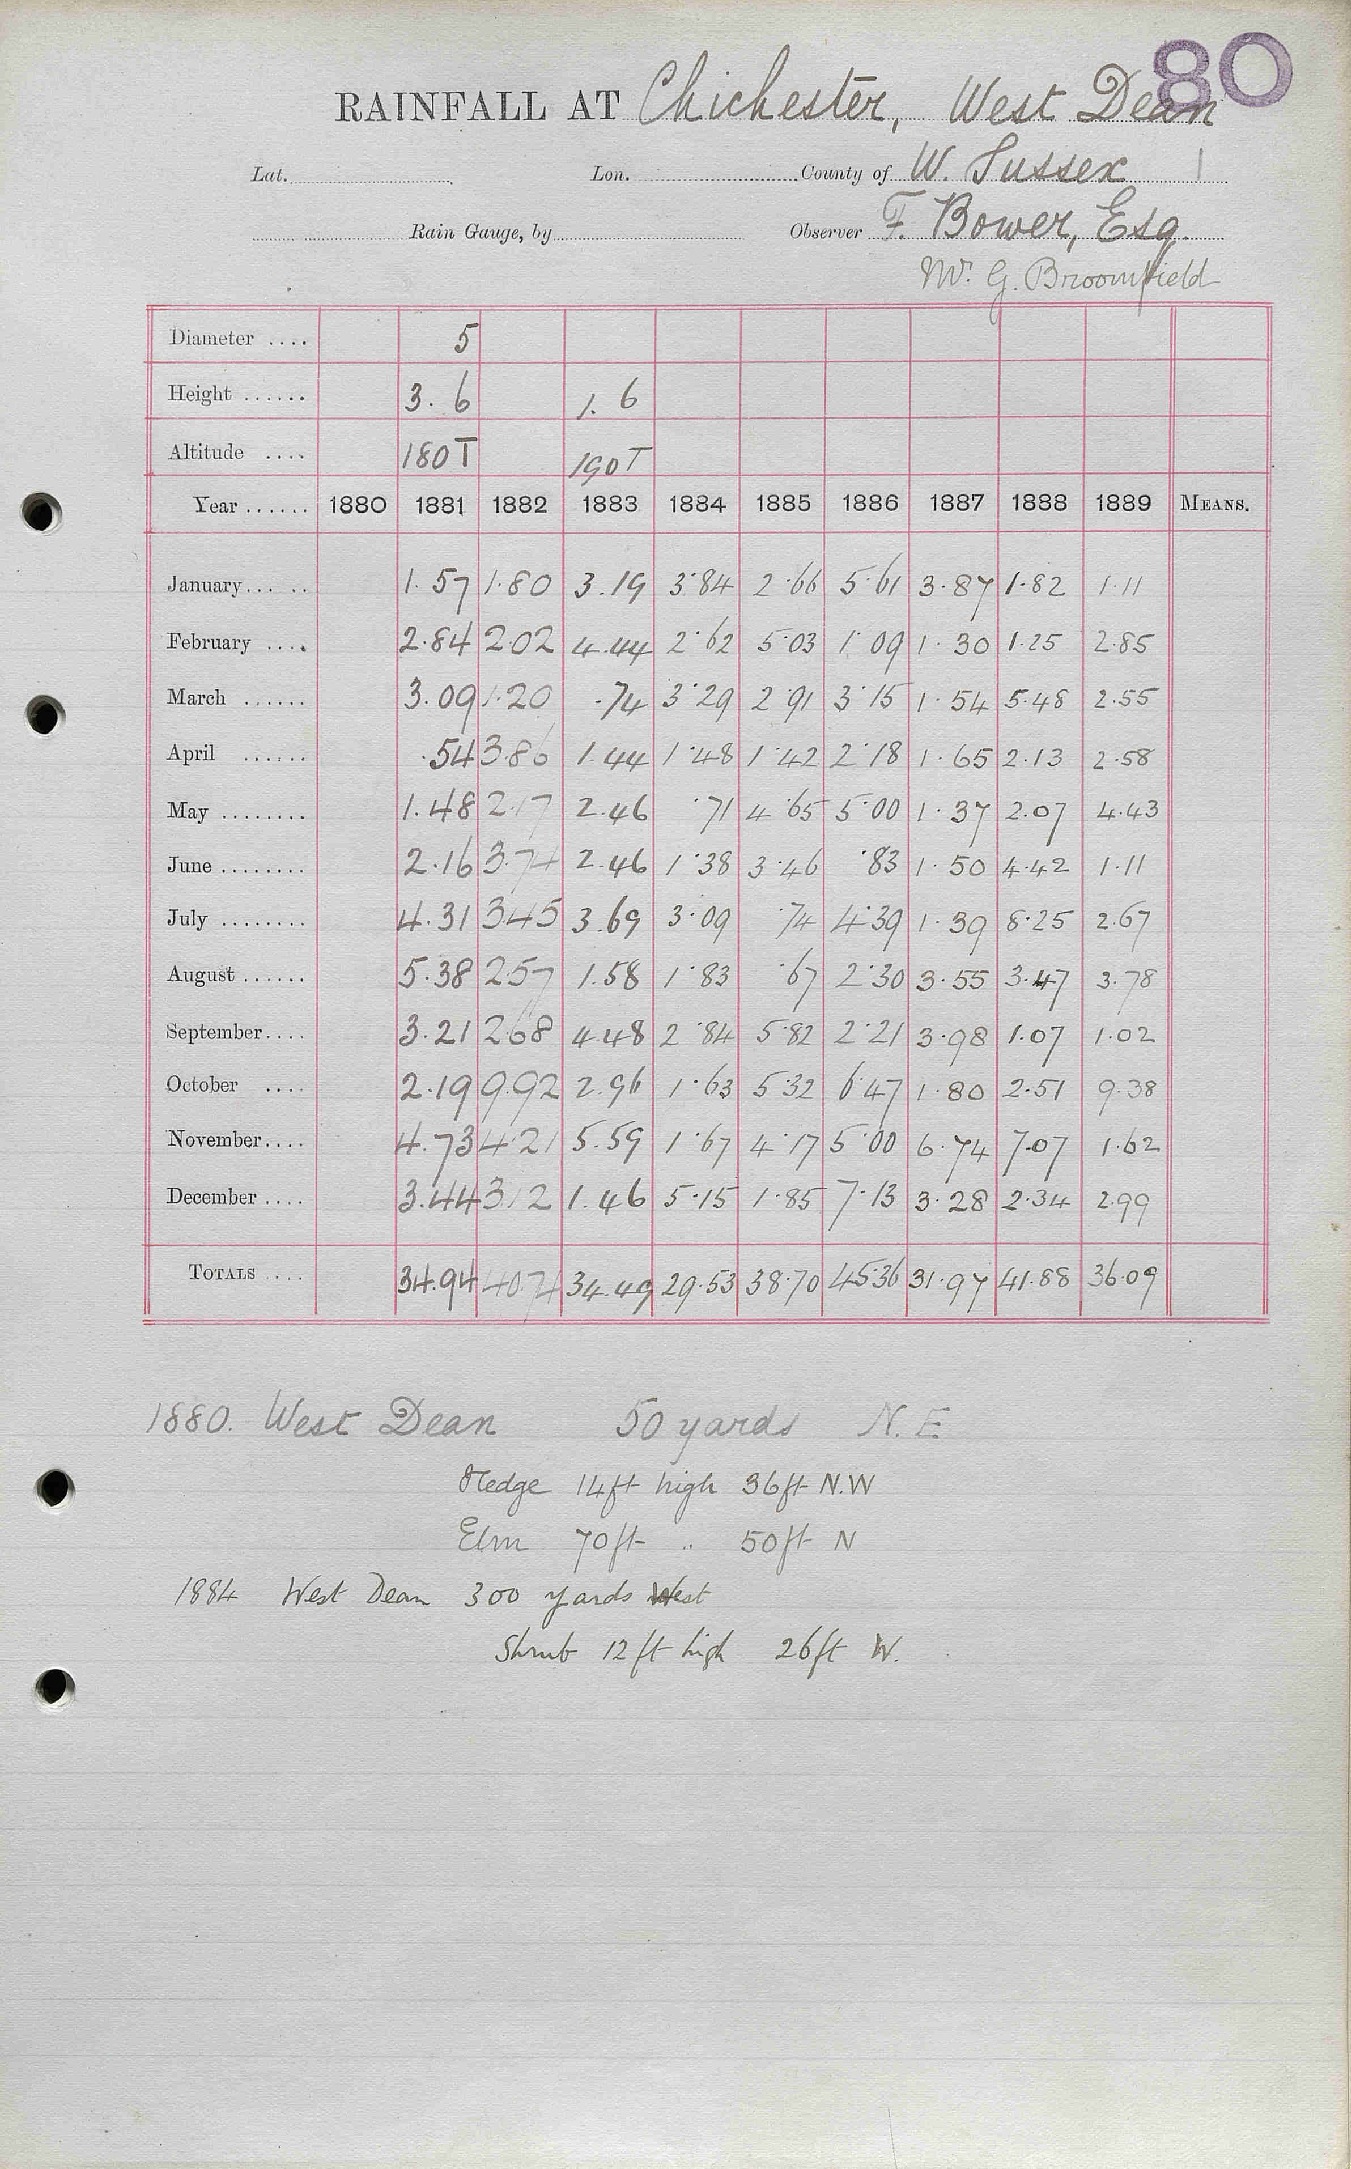 80
RAINFALL AT Chichester, West Dean
Lat. Lon. County of W. Sussex
Rain Gauge, by Observer F. Bower, Esq.
Mr. G. Broomfield
Diameter .... 5
Height ...... 3. 6 1. 6
Altitude .... 180T 190T
Year ...... 1880 1881 1882 1883 1884 1885 1886 1887 1888 1889 MEANS.
January... .. 1.57 1.80 3.19 3.84 2.66 5.61 3.87 1.82 1.11
February .... 2.84 2.02 4.44 2.62 5.03 1.09 1.30 1.25 2.85
March ...... 3.09 1.20 .74 3.29 2.91 3.15 1.54 5.48 2.55
April ...... .54 3.86 1.44 1.48 1.42 2.18 1.65 2.13 2.58
May ........ 1.48 2.17 2.46 .71 4.65 5.00 1.37 2.07 4.43
June ........ 2.16 3.74 2.46 1.38 3.46 .83 1.50 4.42 1.11
July ........ 4.31 3.45 3.69 3.09 .74 4.39 1.39 8.25 2.67
August ...... 5.38 2.57 1.58 1.83 .67 2.30 3.55 3.47 3.78
September.... 3.21 2.68 4.48 2.84 5.82 2.21 3.98 1.07 1.02
October .... 2.19 9.92 2.96 1.63 5.32 6.47 1.80 2.51 9.38
November.... 4.73 4.21 5.59 1.67 4.17 5.00 6.74 7.07 1.62
December .... 3.44 3.12 1.46 5.15 1.85 7.13 3.28 2.34 2.99
TOTALS .... 34.94 40.74 34.49 29.53 38.70 45.36 31.97 41.88 36.09
1880. West Dean 50 yards N. E
Hedge 14ft high 36ft N.W
Elm 70ft .. 50ft N
1884 West Dean 300 yards West
Shrub 12 ft high 26ft W.